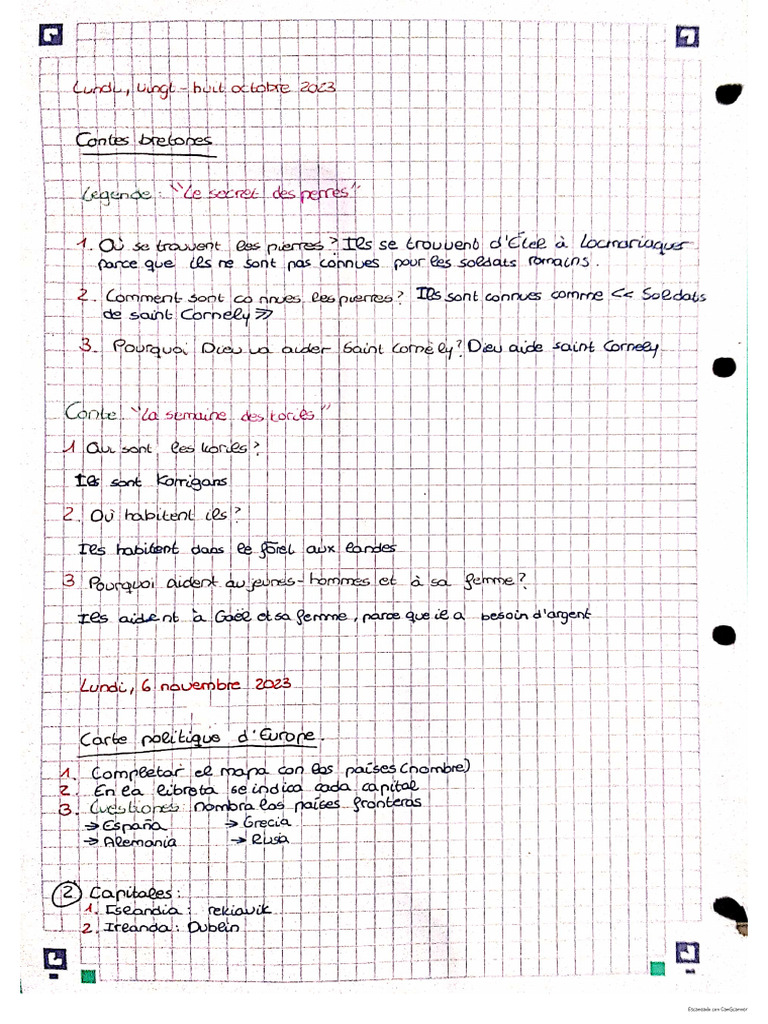 Lundi, vingt-huit octobre 2023
Contes bretones
Légende: "Le secret des perres"
1. Où se trouvent les pierres? Ils se trouvent d'Étel à Locmariaquer
parce que ils ne sont pas connues pour les soldats romains.
2. Comment sont connues les pierres? Ils sont connues comme << Soldats
de saint Cornely >>
3. Pourquoi Dieu va aider Saint Cornély? Dieu aide saint Cornely
Conte "La semaine des kories"
1 Qui sont les kories?
Ils sont Korrigans
2. Où habitent ils?
Ils habitent dans le fôret aux landes
3 Pourquoi aident au jeunes-hommes et à sa femme?
Ils aident à Gaël et sa femme, parce que il a besoin d'argent
Lundi, 6 novembre 2023
Carte politique d'Europe.
1. Completar el mapa con los países (nombre)
2. En la libreta se indica cada capital
3. Cuestiones nombra los países fronteras
→ España → Grecia
→ Alemania → Rusia
2 Capitales:
1. Islandia: rekiavik
2. Irlanda: Dublin
Escaneado con CamScanner